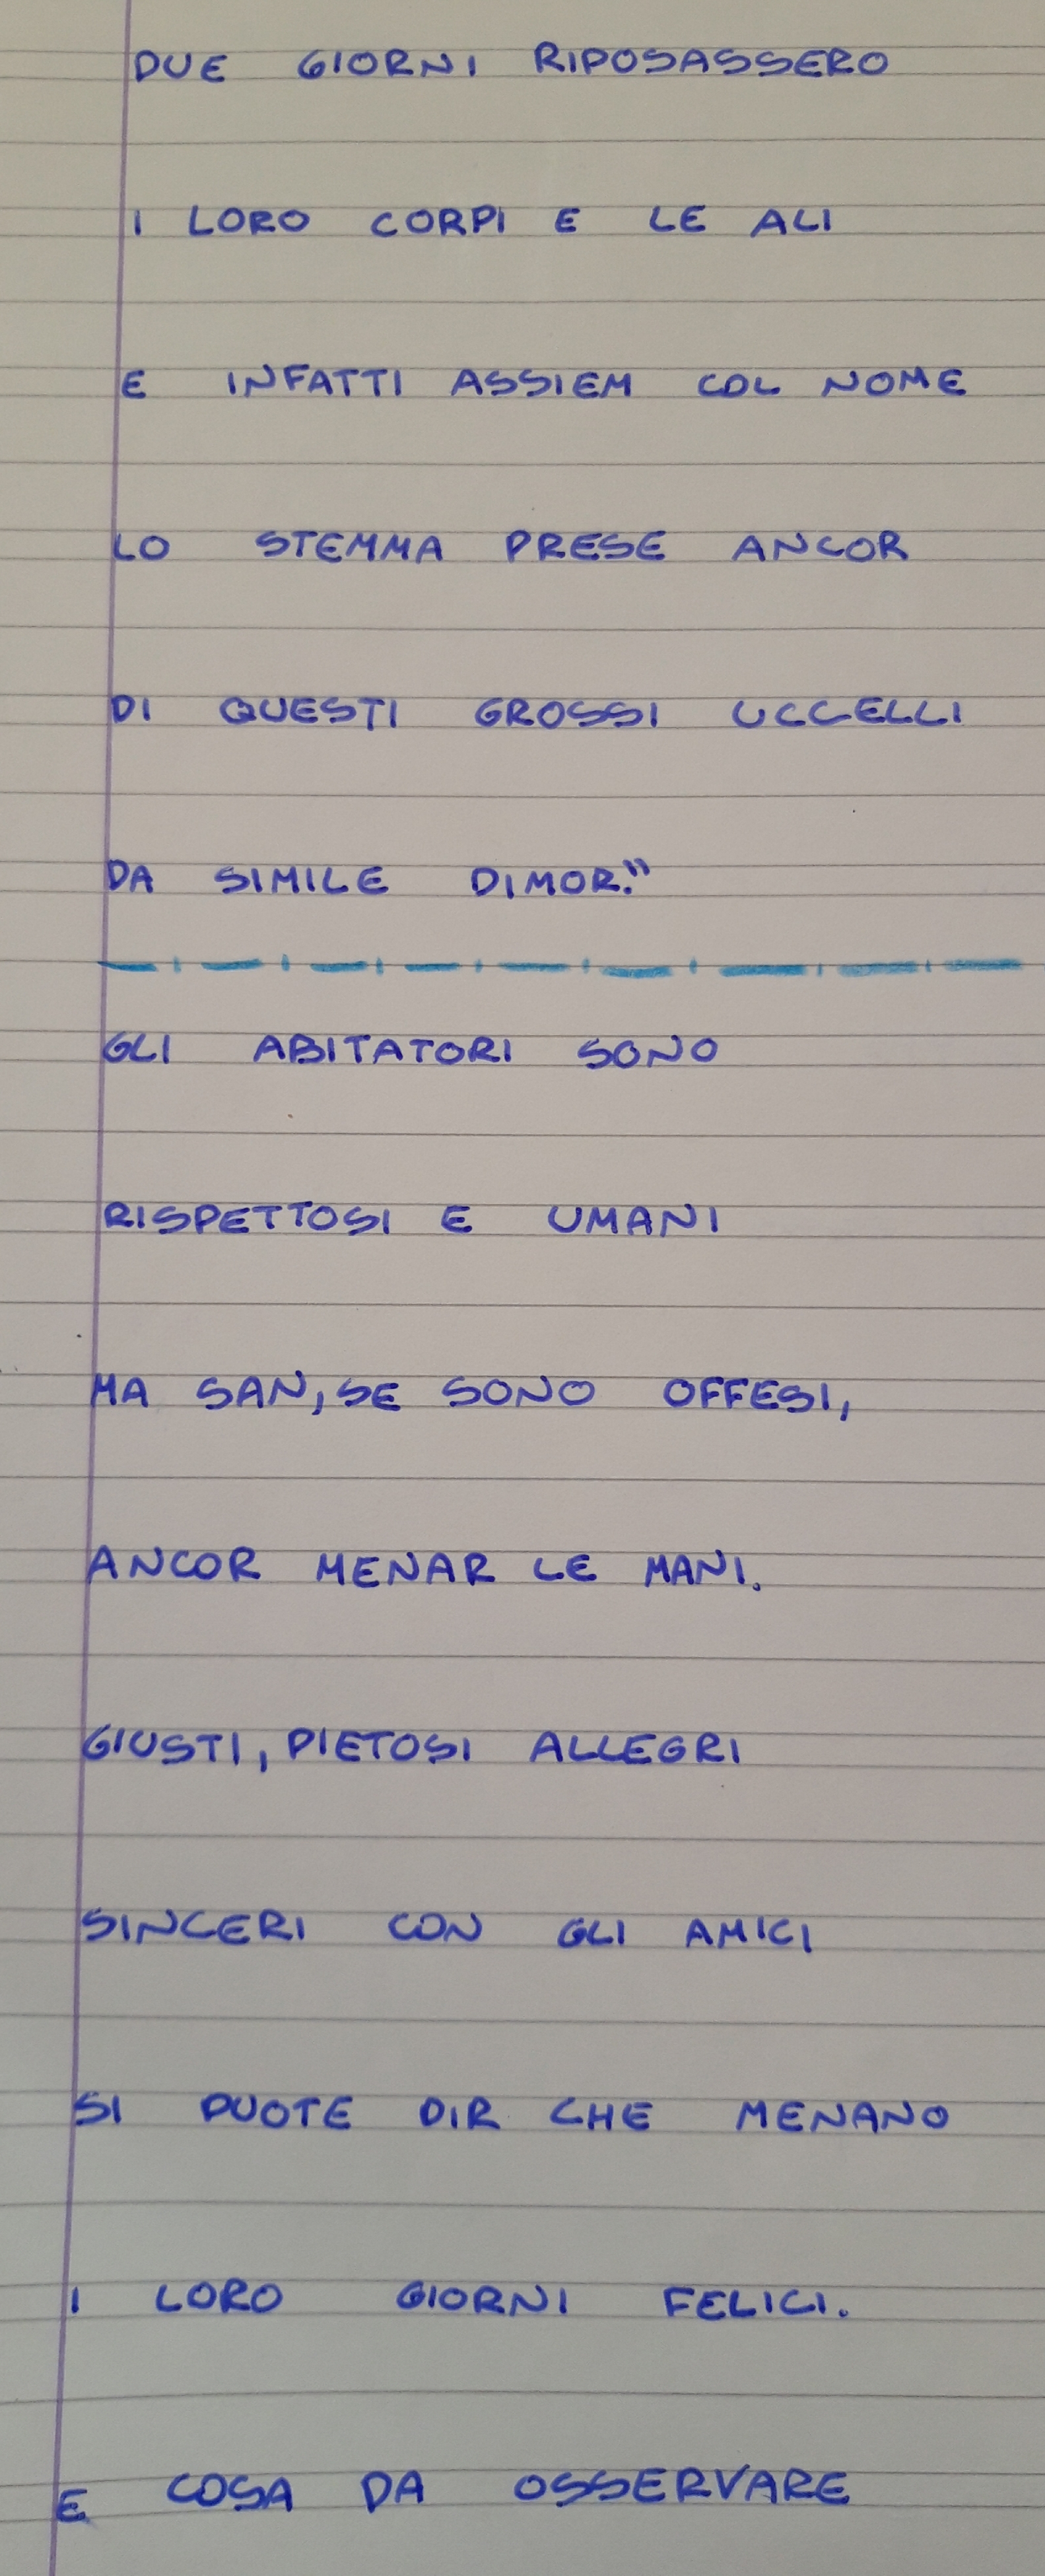 DUE GIORNI RIPOSASSERO
I LORO CORPI E LE ALI
E INFATTI ASSIEM COL NOME
LO STEMMA PRESE ANCOR
DI QUESTI GROSSI UCCELLI
DA SIMILE DIMOR."
GLI ABITATORI SONO
RISPETTOSI E UMANI
MA SAN, SE SONO OFFESI,
ANCOR MENAR LE MANI.
GIUSTI, PIETOSI ALLEGRI
SINCERI CON GLI AMICI
SI PUOTE DIR CHE MENANO
I LORO GIORNI FELICI.
E COSA DA OSSERVARE